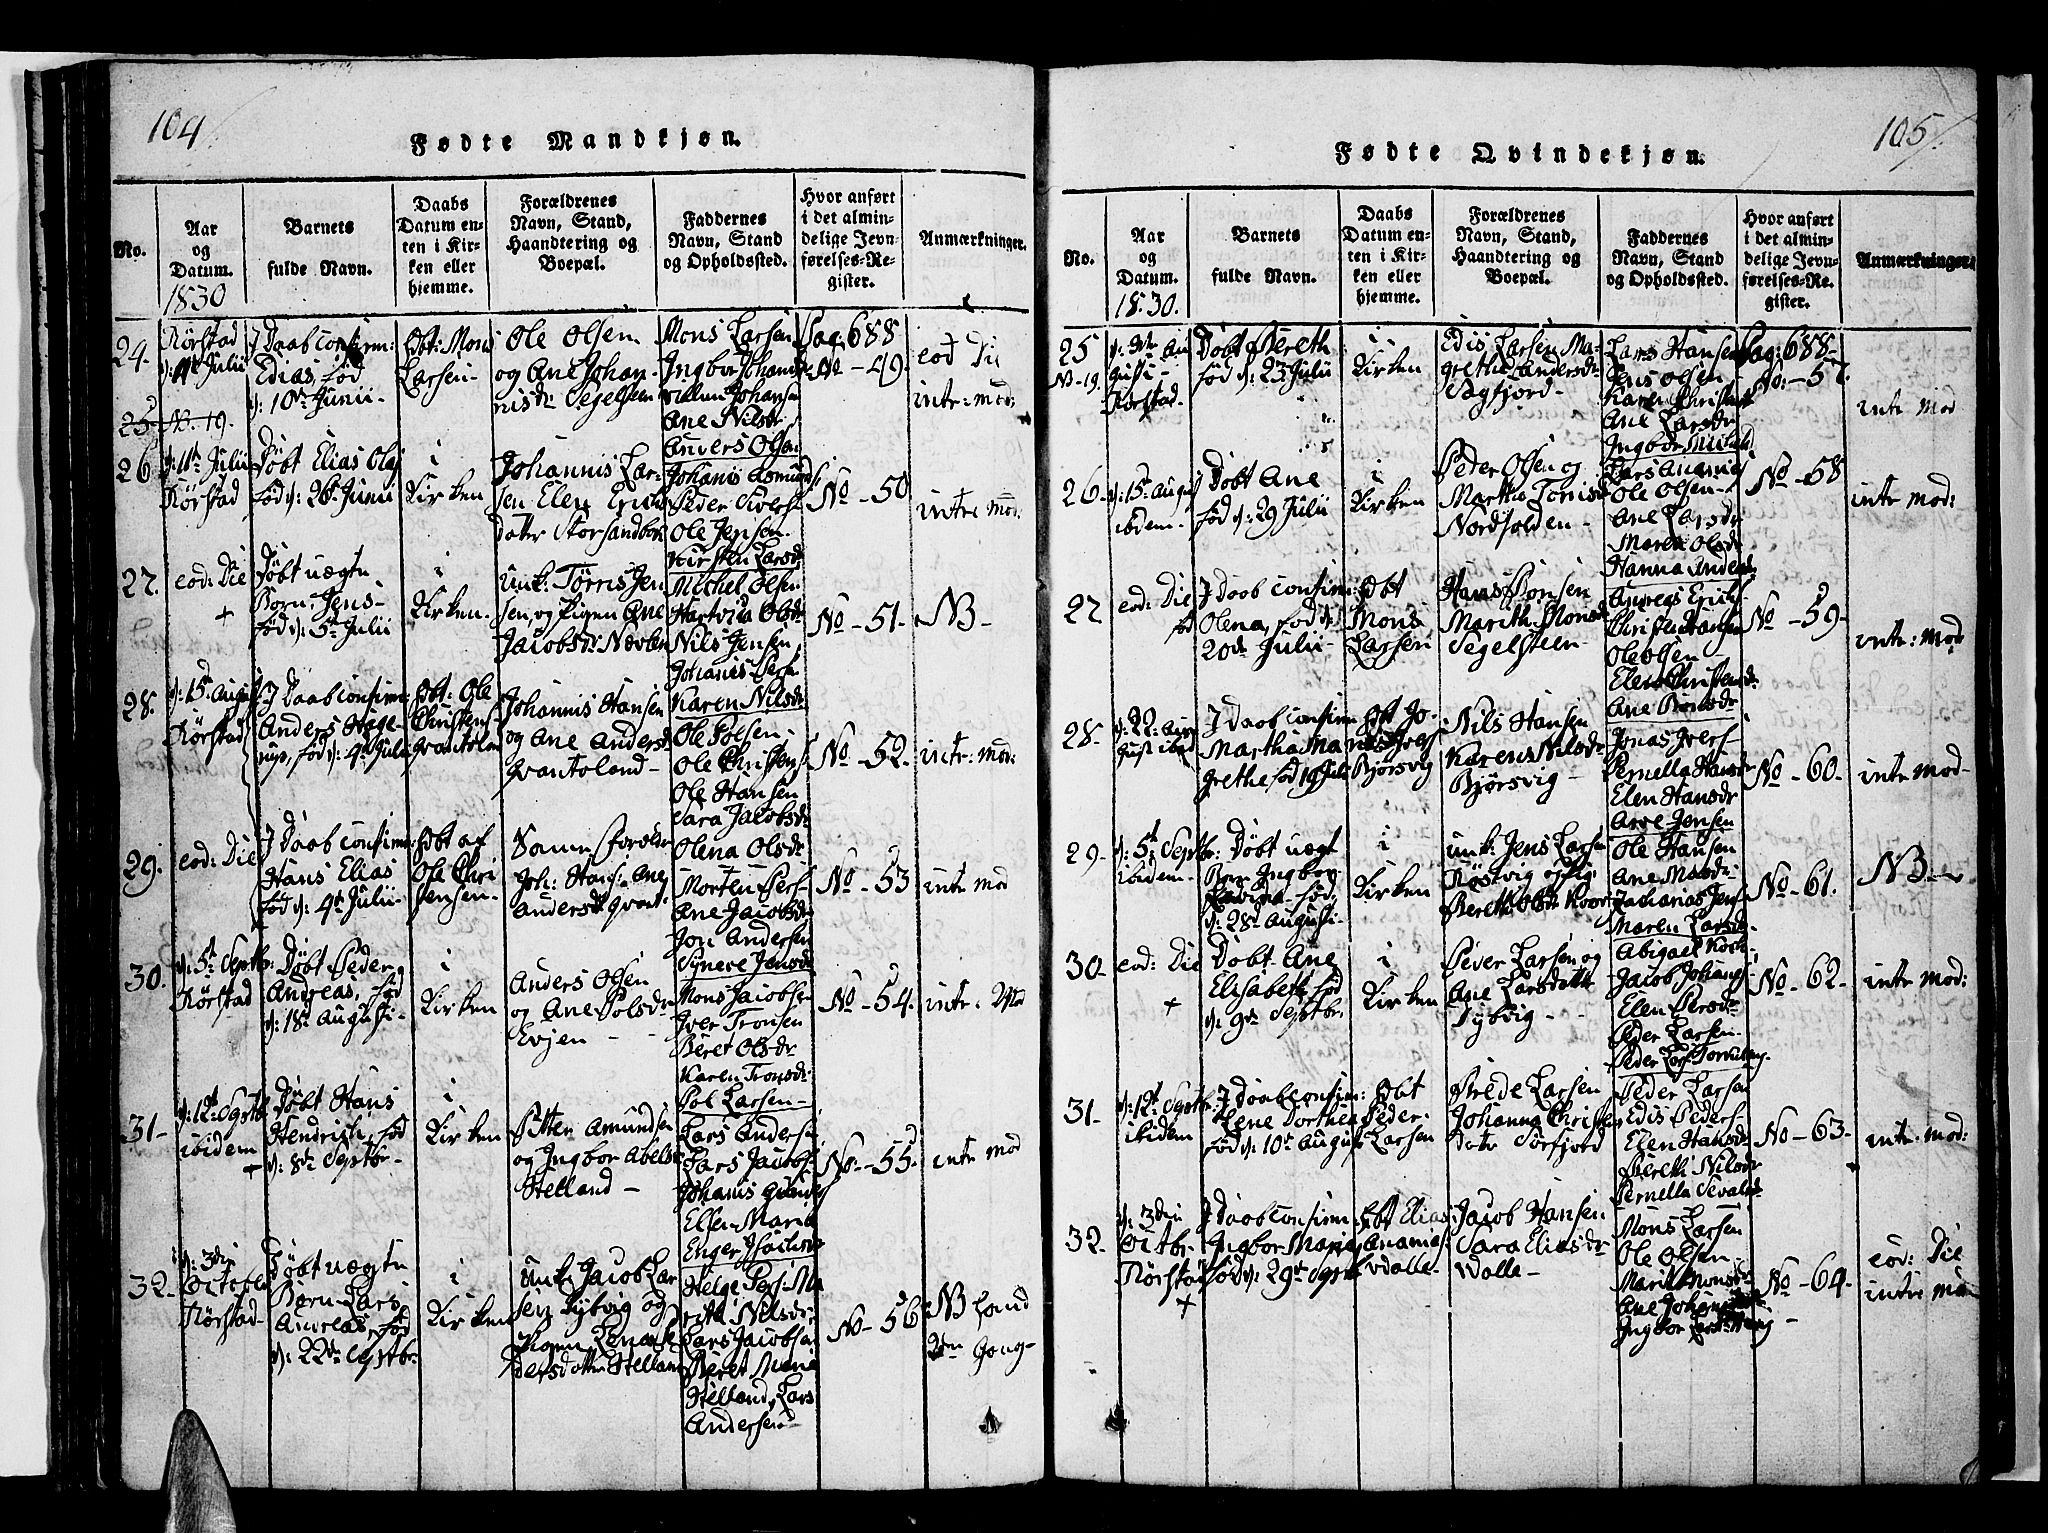 104
Fødte Mandkjøn.
No.
Aar
og
Datum.
1830
Barnets
fulde Navn.
Daabs
Datum en-
ten i Kir-
ken eller
hjemme.
Forældrenes
Navn, Stand,
Haandtering og
Boepæl.
Faddernes
Navn, Stand
og Opholdssted.
Hvor anført
i det almin-
delige Jevn-
førelses-Re-
gister.
Anmærkninger.
24.
Rörstad
d: 4de Julii
I Daab confirm:
Edias, fød
d: 10de Junii-
Døbt: Mons
Larsen-
Ole Olsen
og Ane Johan-
nisdr Segelsteen
Mons Larsen
Ingbor Johannisdr
Villum Johansen
Ane Nilsdr
Anders Olsen
Pag 688
No - 49.
eod Die
intr: mod:
25 No. 19.
26.
d: 11te Julii
Rörstad
Døbt Elias Olaj
fød d: 26de Junii
i
Kirken
Johannis Lar-
sen Elen Erichs
datter Storsandvor
Johanis Asmunds:
Peder Sivers:
Ole Jensen
Kirsten Larsdr
No - 50
intr: mod:
27.
eod: Die
+
Døbt uægte
Børn, Jens-
fød d: 5te Julii
i
Kirken.
Unk: Tørris Jen
sen, og Pigen Ane
Jacobsdr Nævren
Michel Olsen
Hartvia Olsdr
Nils Jensen
Johanis Pers:
Karen Nilsdr
No - 51.
NB-
28.
d: 15de Augusti
Rörstad
I Daab confirm:
Anders Hage-
rup, fød d: 4de Julii
Døbt: Ole
Christens:
Gvantoland
Johannis Hansen
og Ane Andersdr
Gvantoland-
Ole Polsen.
Ole Christens:
Ole Hansen
Sara Jacobsdr
Olena Olsdr
No - 52.
intr: mod:
29.
eod: Die
I Daab confirm:
Hans Elias
fød d: 4de Julii-
Døbt af
Ole Chri
stensen-
Samme Foreldr
Joh: Hans: Ane
Andersdr Gvant:
Morten Pers:
Ane Jacobsdr
Jon Andersen
Syneve Jonsdr
No - 53
intr mod
30.
d: 5te Septbr:
Rörstad
Døbt Peder
Andreas, fød
d: 18de Augusti-
i
Kirken
Anders Olsen
og Ane Polsdr
Evjen
Mons Jacobsen
Iver Tronsen
Beret Olsdr
Karen Tronsdr
Pol Larsen-
No - 54.
intr. Mod
31-
d: 12te Septbr
ibidem
+
Døbt Hans
Hendrich, fød
d: 8de Septbr-
i
Kirken
Petter Amundsen
og Ingbor Abelsdr
Helland-
Lars Anders:
Lars Jacobs:
Johanis
Ellen Maria
Enger
No - 55.
intr mod
32-
d: 3die
October
Rörstad-
Døbt uægte
Børn Lars
Andreas, fød
d: 22de Septbr
i
Kirken
Unk: Jacob Lar
sen Tybvig og
Pigen Lena
dersdatter Helland
Helge Pers: Ma
reth Nilsdr
Lars Jacobsen
Beret Maria
Helland, Lars
Andersen
No - 56
NB Land
2den Gang-
105
Fødte Qvindekjøn.
No.
Aar
og
Datum.
1830.
Barnets
fulde Navn.
Daabs
Datum en-
ten i Kir-
ken eller
hjemme.
Forældrenes
Navn, Stand,
Haandtering og
Boepæl.
Faddernes
Navn, Stand
og Opholdssted.
Hvor anført
i det almin-
delige Jevn-
førelses-Re-
gister.
Anmærkninger.
25
No - 19.
d: 1ste Au
gusti-
Rörstad-
Døbt Bereth
fød d: 23 Julii
i
Kirken
Edis Larsen Ma-
grethe Andersdr
Vagfjord-
Lars Hansen
Jens Olsen
Karen Christensdr
Ane Larsdr
Ingbor
Pag: 688
No: - 57.
intr mod
26.
d: 15de Augusti
ibdem-
Døbt Ane
fød d: 29 Julii
i
Kirken
Peder Olsen og
Martha Tørrisdr
Nordfolden-
Lars Ananias
Ole Olsen
Ane Larsdr
Maren Olsdr
Hanna Andersdr
No - 58
intr mod:
27
eod: Die
I Daab confirm:
Olena, fød d:
20de Julii-
Døbt
Mons
Larsen
Hans Børsen
Marith Monsdr
Segelsteen-
Andreas Erichs:
Christen Hansen
Ole Olsen
Elen Christensdr
Ane Børrisdr
No - 59.
intr: mod
28.
d: 22: Au
gust ibid
I Daab confirm:
Martha Mar
grethe fød 19 Julii
Døbt Jo-
nas Ivers:
Bjørsvig
Nils Hansen
Karen Nilsdr
Bjørsvig-
Jonas Ivers-
Pernella Hansdr
Elen Hansdr
Arve Jensen
No - 60.
intr mod-
29-
d: 5te Septbr:
ibidem-
Døbt uægt
Børn Ingbor
fød
d: 28de Augusti-
i
Kirken
Unk: Jens Larsen
Røsvig og Pig:
Berethe Olsdr
Ole Hansen
Ane Madsdr
Zacharias Jens:
Maren Larsdr
Abigael Koch
No - 61.
NB-
30-
eod: Die
+
Døbt Ane
Elisabeth fød
d: 9de Septbr.
i
Kirken
Peder Larsen og
Ane Larsdatter
Tybvig-
Jacob Johans:
Elen Persdr
Peder Larsen
Peder Lars:
No - 62-
intr mod:
31-
d: 12te Septbr:
ibidem
I Daab confirm:
Lene Dorthea
fød d: 10de August
Døbt
Peder
Larsen
Brede Larsen
Johanna Christen
datr Sørfjord
Peder Larsen
Edis Peders:
Elen Hansdr
Bereth Nilsdr
Pernella Sevalsdr
No - 63-
intr. mod:
32-
d: 3die
Octbr.
Rörstad
+
I Daab confirm:
Ingbor Maria,
fød d: 29de Septr
Døbt Elias
Ananias:
Valle-
Jacob Hansen
Sara Eliasdr
Valle-
Mons Larsen
Ole Olsen
Marit Monsdr
Ane Johansdr
Ingbor
No - 64-
eod: Die
intr: mod